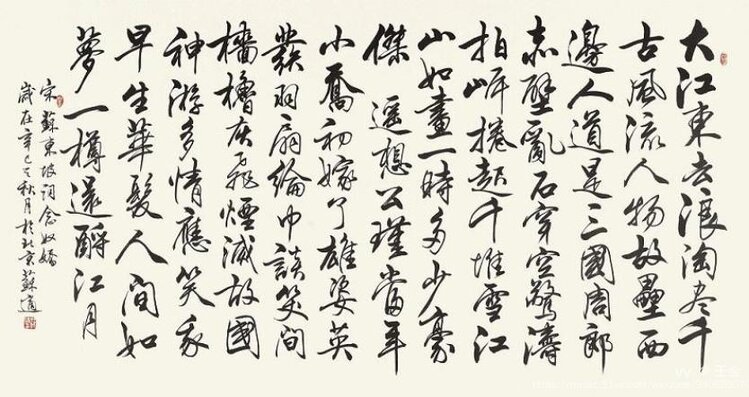 大江東去浪淘尽千
古風流人物故壘西
邊人道是三國周郎
赤壁亂石穿空驚濤
拍岸捲起千堆雪江
山如畫一時多少豪
傑遥想公瑾當年
小喬初嫁了雄姿英
發羽扇綸巾談笑間
檣櫓灰飛煙滅故國
神游多情應笑我
早生華髮人間如
夢一樽還酹江月
宋蘇東坡詞念奴嬌
歲在辛巳之秋月於北京蘇適